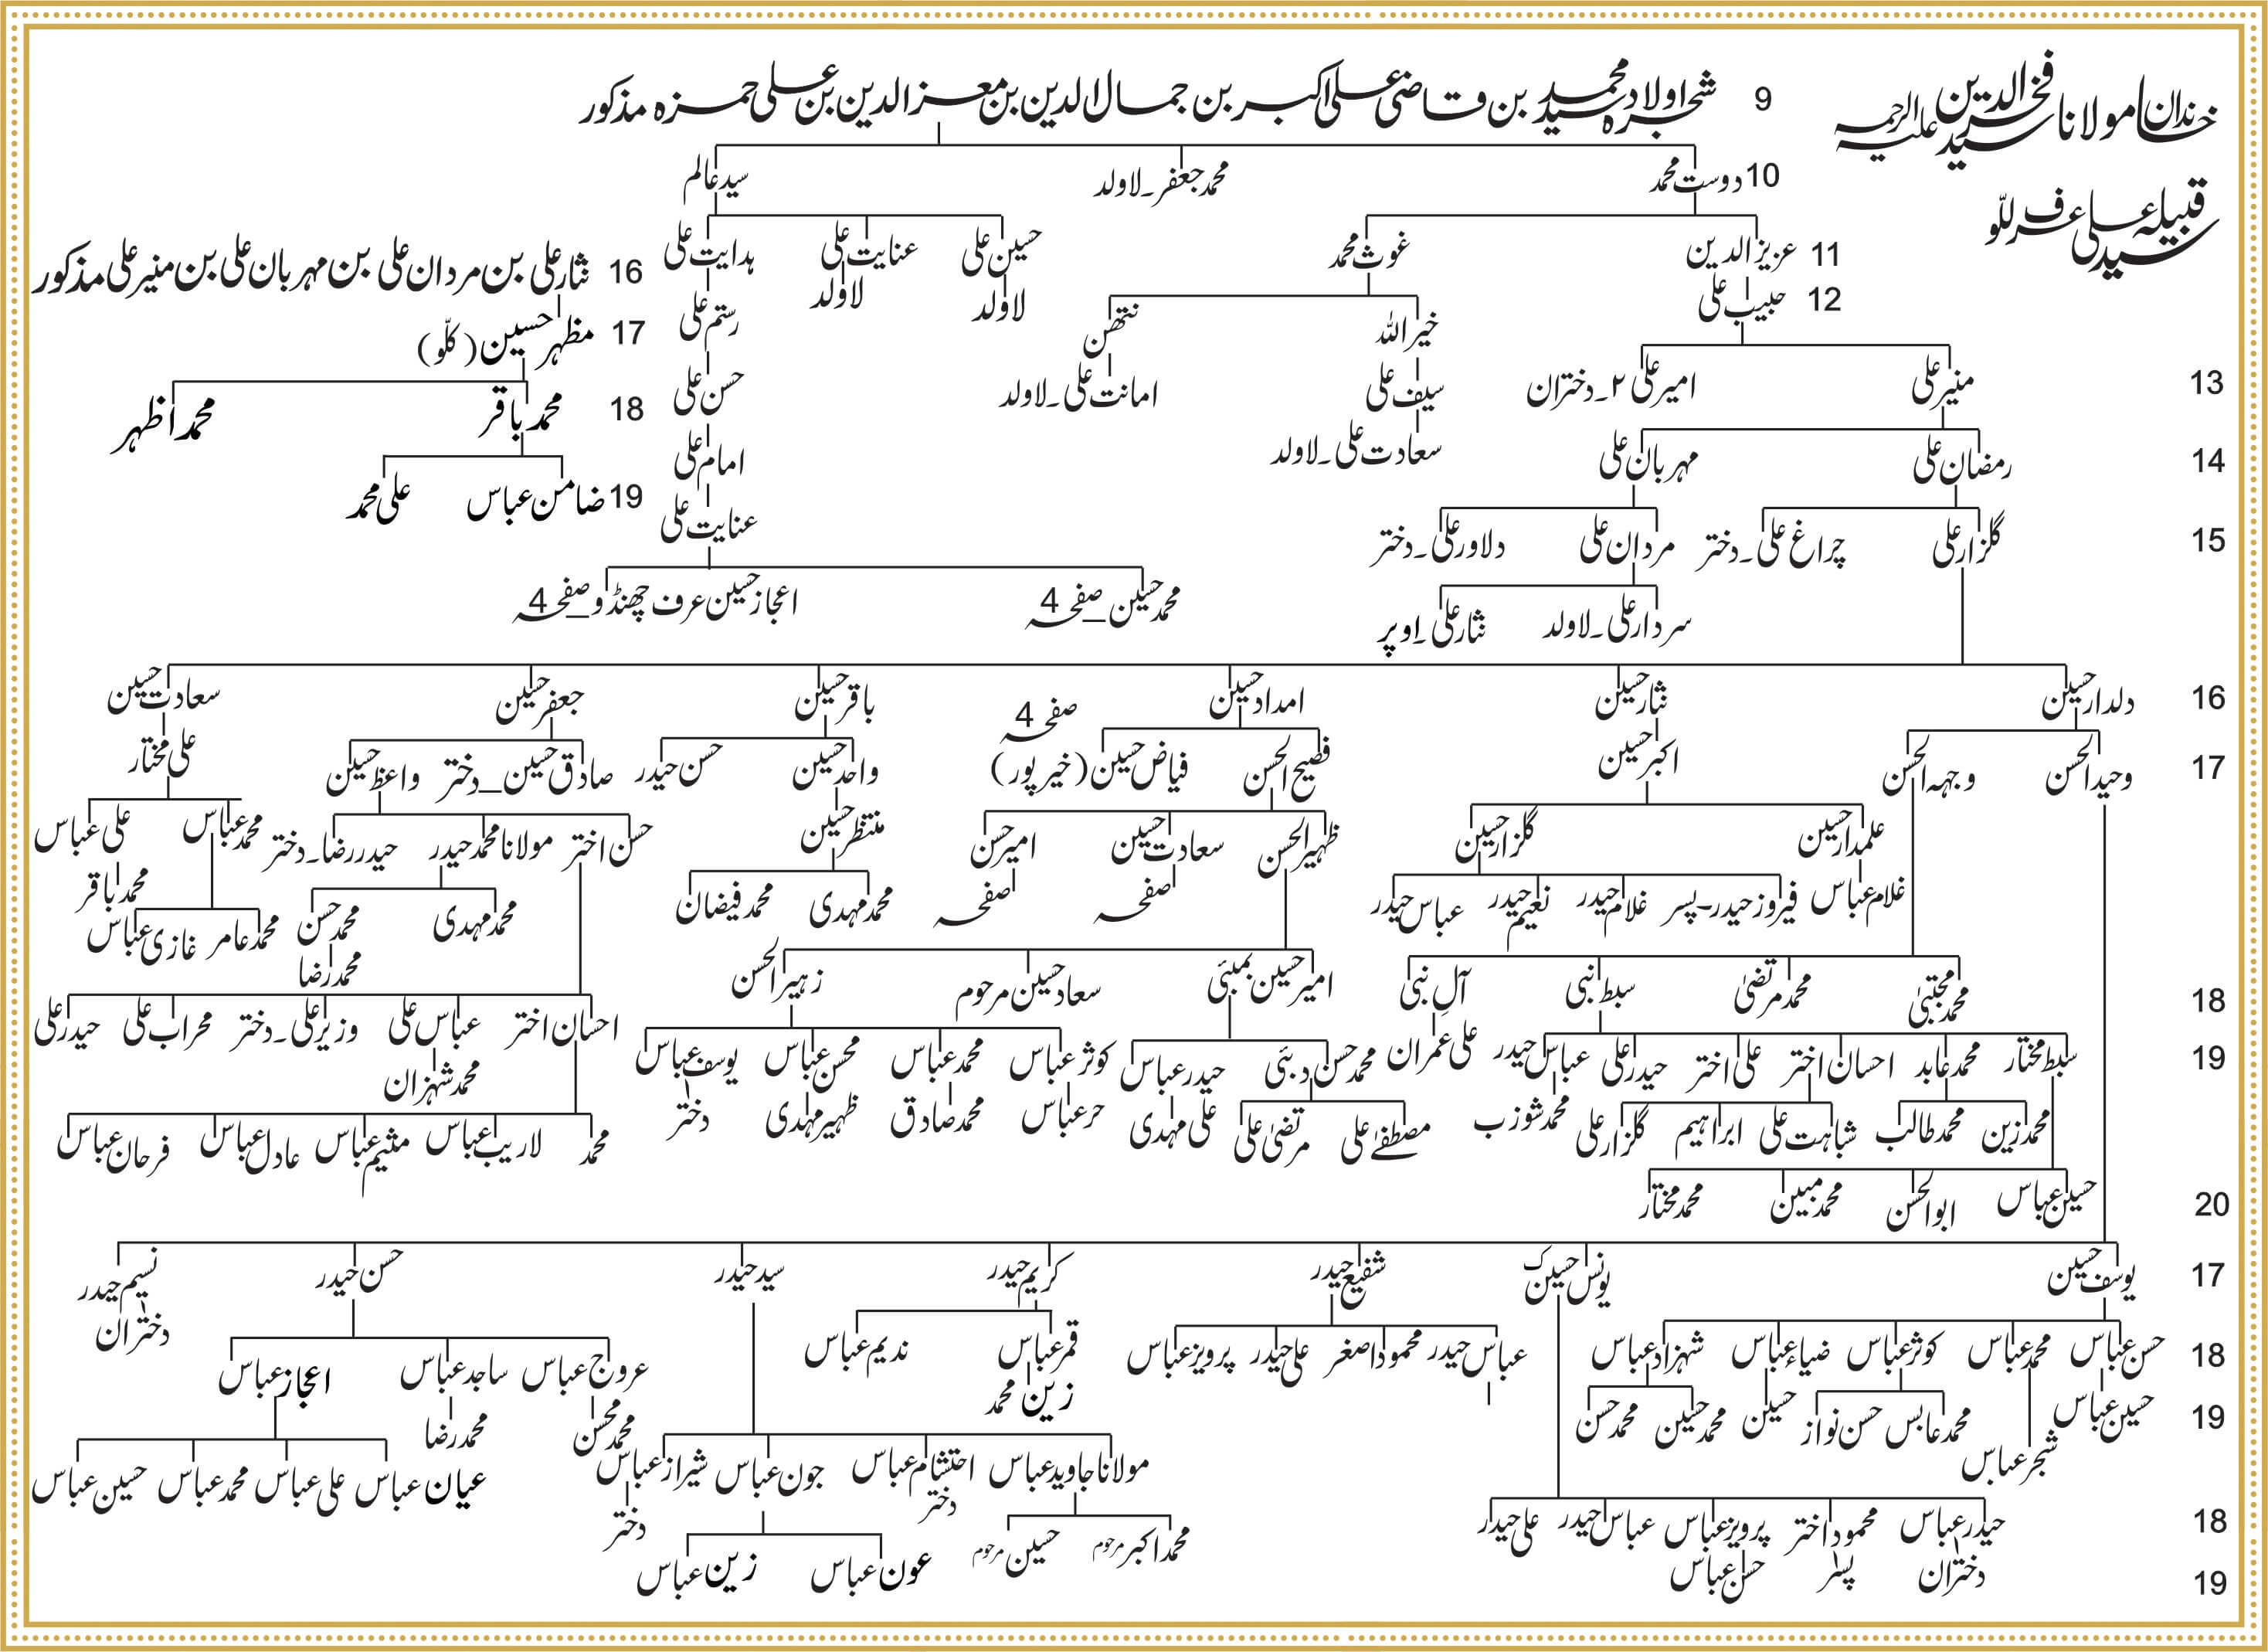 خاندان مولانا سید فخرالدین علیہ الرحمہ
قبیلہ سید علی عرف للّو
9 شجرہ اولاد سید محمد بن قاضی علی اکبر بن جمال الدین بن معزالدین بن علی حمزہ مذکور
10 دوست محمد محمد جعفر۔لاولد سید عالم
11 عزیز الدین غوث محمد حسین علی عنایت علی ہدایت علی
لاولد لاولد
12 حبیب علی خیر اللہ نتھن رستم علی
16 نثار علی بن مردان علی بن مہربان علی بن منیر علی مذکور
17 مظہر حسین (کلّو)
18 محمد باقر محمد اظہر
19 ضامن عباس علی محمد
13 منیر علی امیر علی ۲۔دختران سیف علی امانت علی۔لاولد حسن علی
14 رمضان علی مہربان علی سعادت علی۔لاولد امام علی
عنایت علی
15 گلزار علی چراغ علی۔دختر مردان علی دلاور علی۔دختر
سردار علی۔لاولد نثار علی۔اوپر محمد حسین_صفحہ 4 اعجاز حسین عرف جھنڈو_صفحہ 4
16 دلدار حسین نثار حسین امداد حسین باقر حسین جعفر حسین سعادت حسین
17 وحید الحسن وجہہ الحسن اکبر حسین فصیح الحسن فیاض حسین (خیر پور) صفحہ 4 واحد حسین حسن حیدر صادق حسین_دختر واعظ حسین علی مختار
علمدار حسین گلزار حسین ظہیر الحسن سعادت حسین امیر حسن منتظر حسین حسن اختر مولانا محمد حیدر حیدر رضا۔دختر محمد عباس علی عباس
غلام عباس فیروز حیدر۔پسر غلام حیدر نعیم حیدر عباس حیدر صفحہ صفحہ محمد مہدی محمد فیضان محمد مہدی محمد حسن محمد باقر
محمد عامر غازی عباس
محمد رضا
18 محمد مجتبیٰ محمد مرتضیٰ سبط نبی آلِ نبی امیر حسین بمبئی سعاد حسین مرحوم زہیر الحسن
احسان اختر عباس علی وزیر علی۔دختر محراب علی حیدر علی
19 سبط مختار محمد عابد احسان اختر علی اختر حیدر علی عباس حیدر علی عمران محمد حسن دبئی حیدر عباس کوثر عباس محمد عباس محسن عباس یوسف عباس محمد شہزان
محمد زین محمد طالب شاہت علی ابراہیم گلزار علی محمد شوزب مصطفےٰ علی مرتضیٰ علی علی مہدی حر عباس محمد صادق ظہیر مہدی دختر
محمد لاریب عباس مثیم عباس عادل عباس فرحان عباس
20 حسین عباس ابو الحسن محمد مبین محمد مختار
17 یوسف حسین یونس حسین شفیع حیدر کریم حیدر سید حیدر حسن حیدر نسیم حیدر
دختران
18 حسن عباس محمد عباس کوثر عباس ضیاء عباس شہزاد عباس عباس حیدر محمود اصغر علی حیدر پرویز عباس قمر عباس ندیم عباس عروج عباس ساجد عباس اعجاز عباس
زین محمد
19 حسین عباس شجر عباس محمد عابس حسن نواز حسین محمد حسین محمد حسن محمد محسن محمد رضا
مولانا جاوید عباس احتشام عباس جون عباس شیراز عباس عیان عباس علی عباس محمد عباس حسین عباس
دختر دختر
18 حیدر عباس محمود اختر پرویز عباس عباس حیدر علی حیدر
محمد اکبر مرحوم حسین مرحوم عون عباس زین عباس
19 دختران پسر حسن عباس